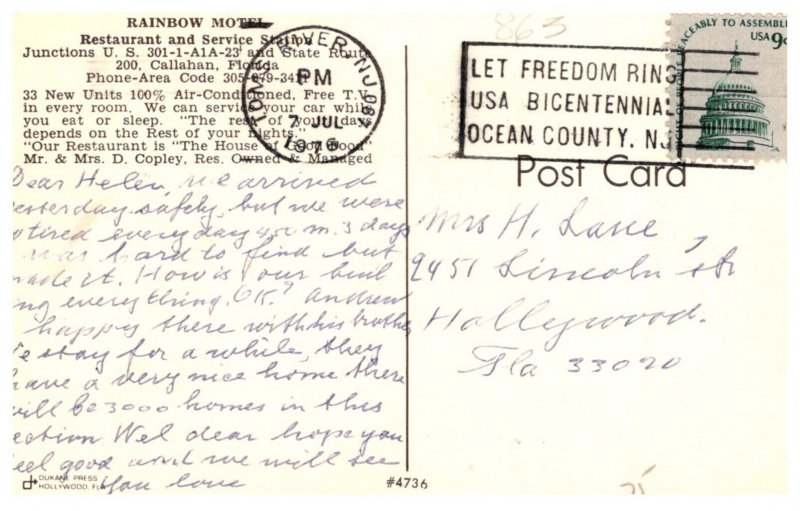 RAINBOW MOTEL
Restaurant and Service Station
Junctions U. S. 301-1-A1A-23 and State Route
200, Callahan, Florida
Phone-Area Code 305-879-341
33 New Units 100% Air-Conditioned, Free T.V.
in every room. We can service your car while
you eat or sleep. "The rest of your days
depends on the Rest of your Nights."
"Our Restaurant is "The House of Good Food"
Mr. & Mrs. D. Copley, Res. Owned & Managed
TOMS RIVER, NJ 087
PM
7 JUL
1976
863
LET FREEDOM RING
USA BICENTENNIAL
OCEAN COUNTY, NJ
PEACEABLY TO ASSEMBLE
USA 9c
Post Card
Dear Helen, we arrived
yesterday safely, but we were
tired everyday 400 m. 3 days
was hard to find but
made it. How is your buil
ing everything. OK? Andrew
happy there with his brother
We stay for a while, they
have a very nice home there
will be 3000 homes in this
section Wel dear hope you
feel good and we will see
you love
Mrs H. Lane,
2451 Lincoln str
Hollywood.
Fla 33020
DUKANE PRESS
HOLLYWOOD, FLA
#4736